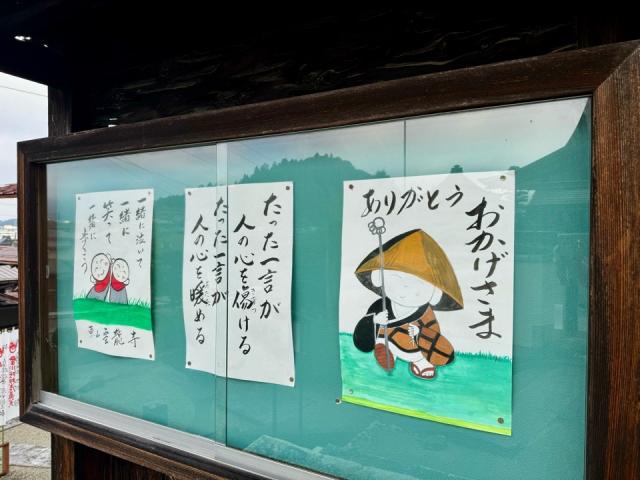 一緒に泣いて
一緒に
笑って
一緒に
雲龍寺
たった一言が
人の心を傷ける
たった一言が
人の心を暖める
ありがとう
おかげさま